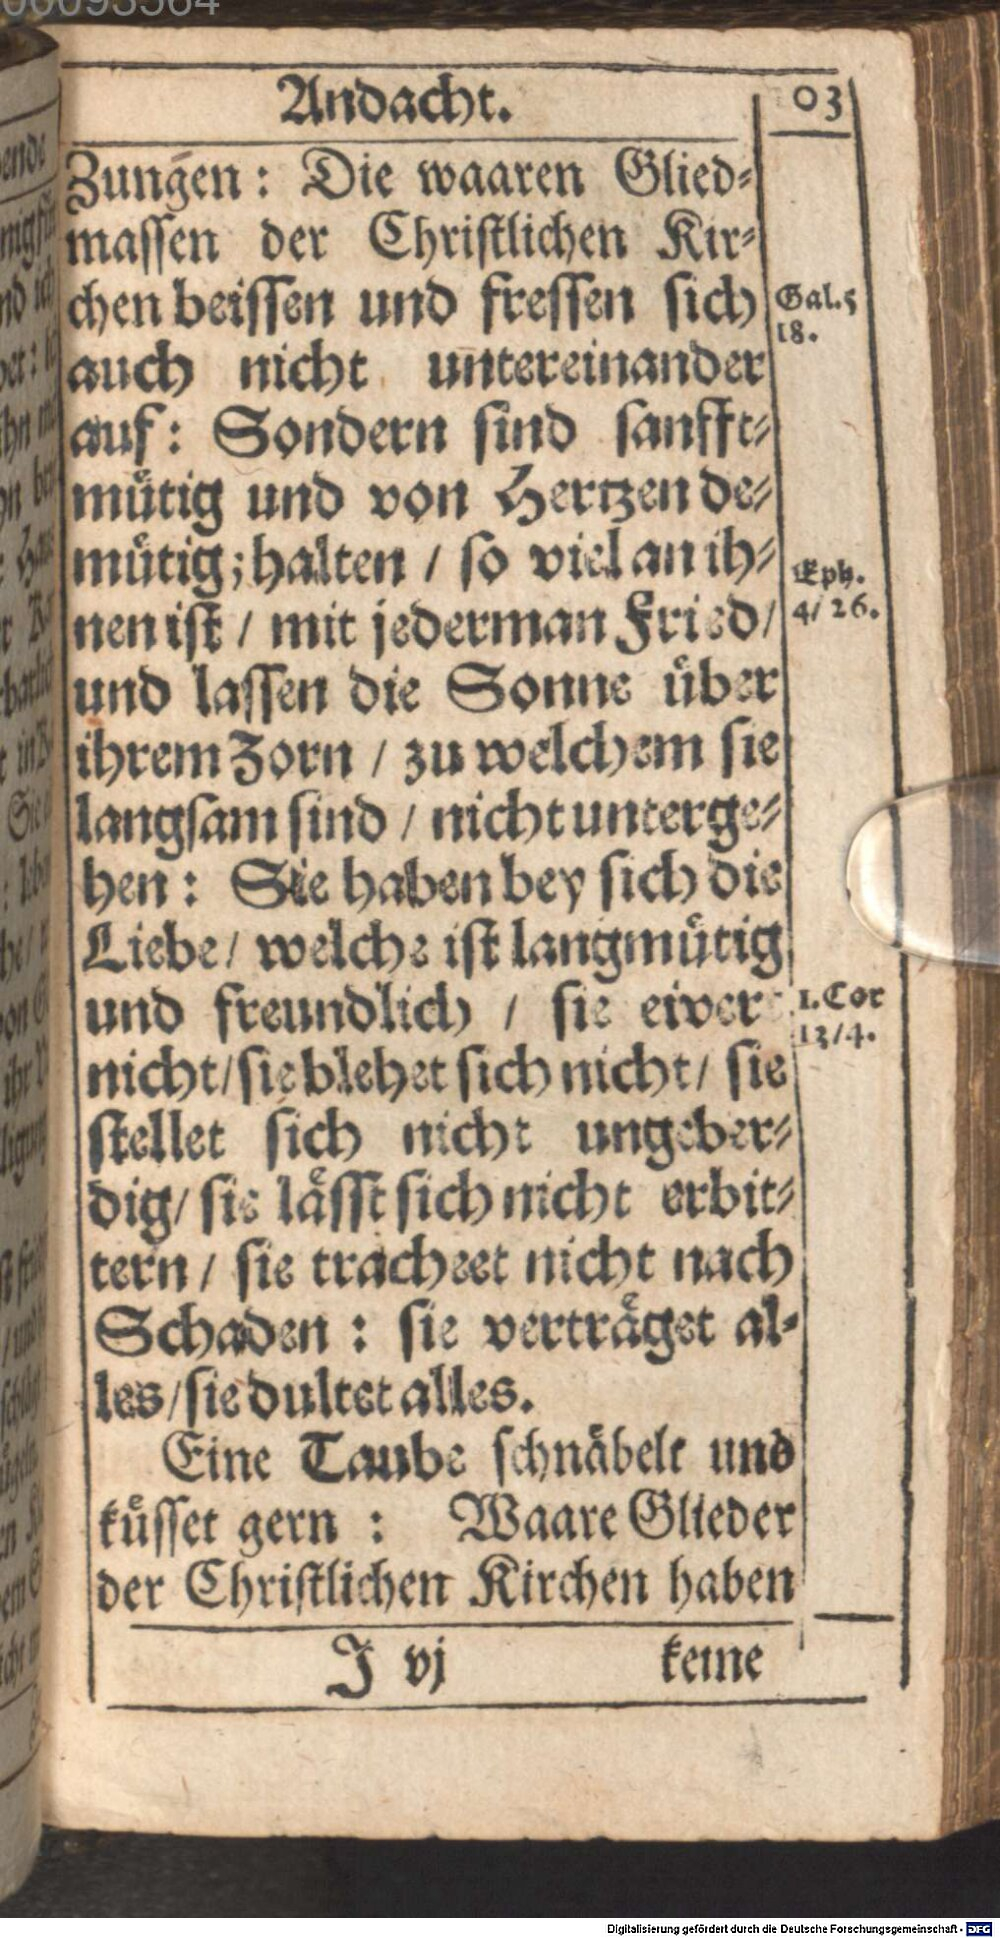 Andacht.
03
Zungen: Die waaren Glied⸗
massen der Christlichen Kir⸗
chen beissen und fressen sich
Gal. 5
18.
auch nicht untereinander
auf: Sondern sind sanfft⸗
muͤtig und von Hertzen de⸗
muͤtig; halten / so viel an ih⸗
Eph.
nen ist / mit jederman Fried /
4/ 26.
und lassen die Sonne uͤber
ihrem Zorn / zu welchem sie
langsam sind / nicht unterge⸗
hen: Sie haben bey sich die
Liebe / welche ist langmuͤtig
und freundlich / sie eiver
1. Cor
13/4.
nicht / sie blehet sich nicht / sie
stellet sich nicht ungeber⸗
dig / sie laͤsst sich nicht erbit⸗
tern / sie trachtet nicht nach
Schaden: sie vertraͤget al⸗
les / sie dultet alles.
Eine Taube schnaͤbelt und
kuͤsset gern: Waare Glieder
der Christlichen Kirchen haben
J vj
keine
Digitalisierung gefördert durch die Deutsche Forschungsgemeinschaft - DFG